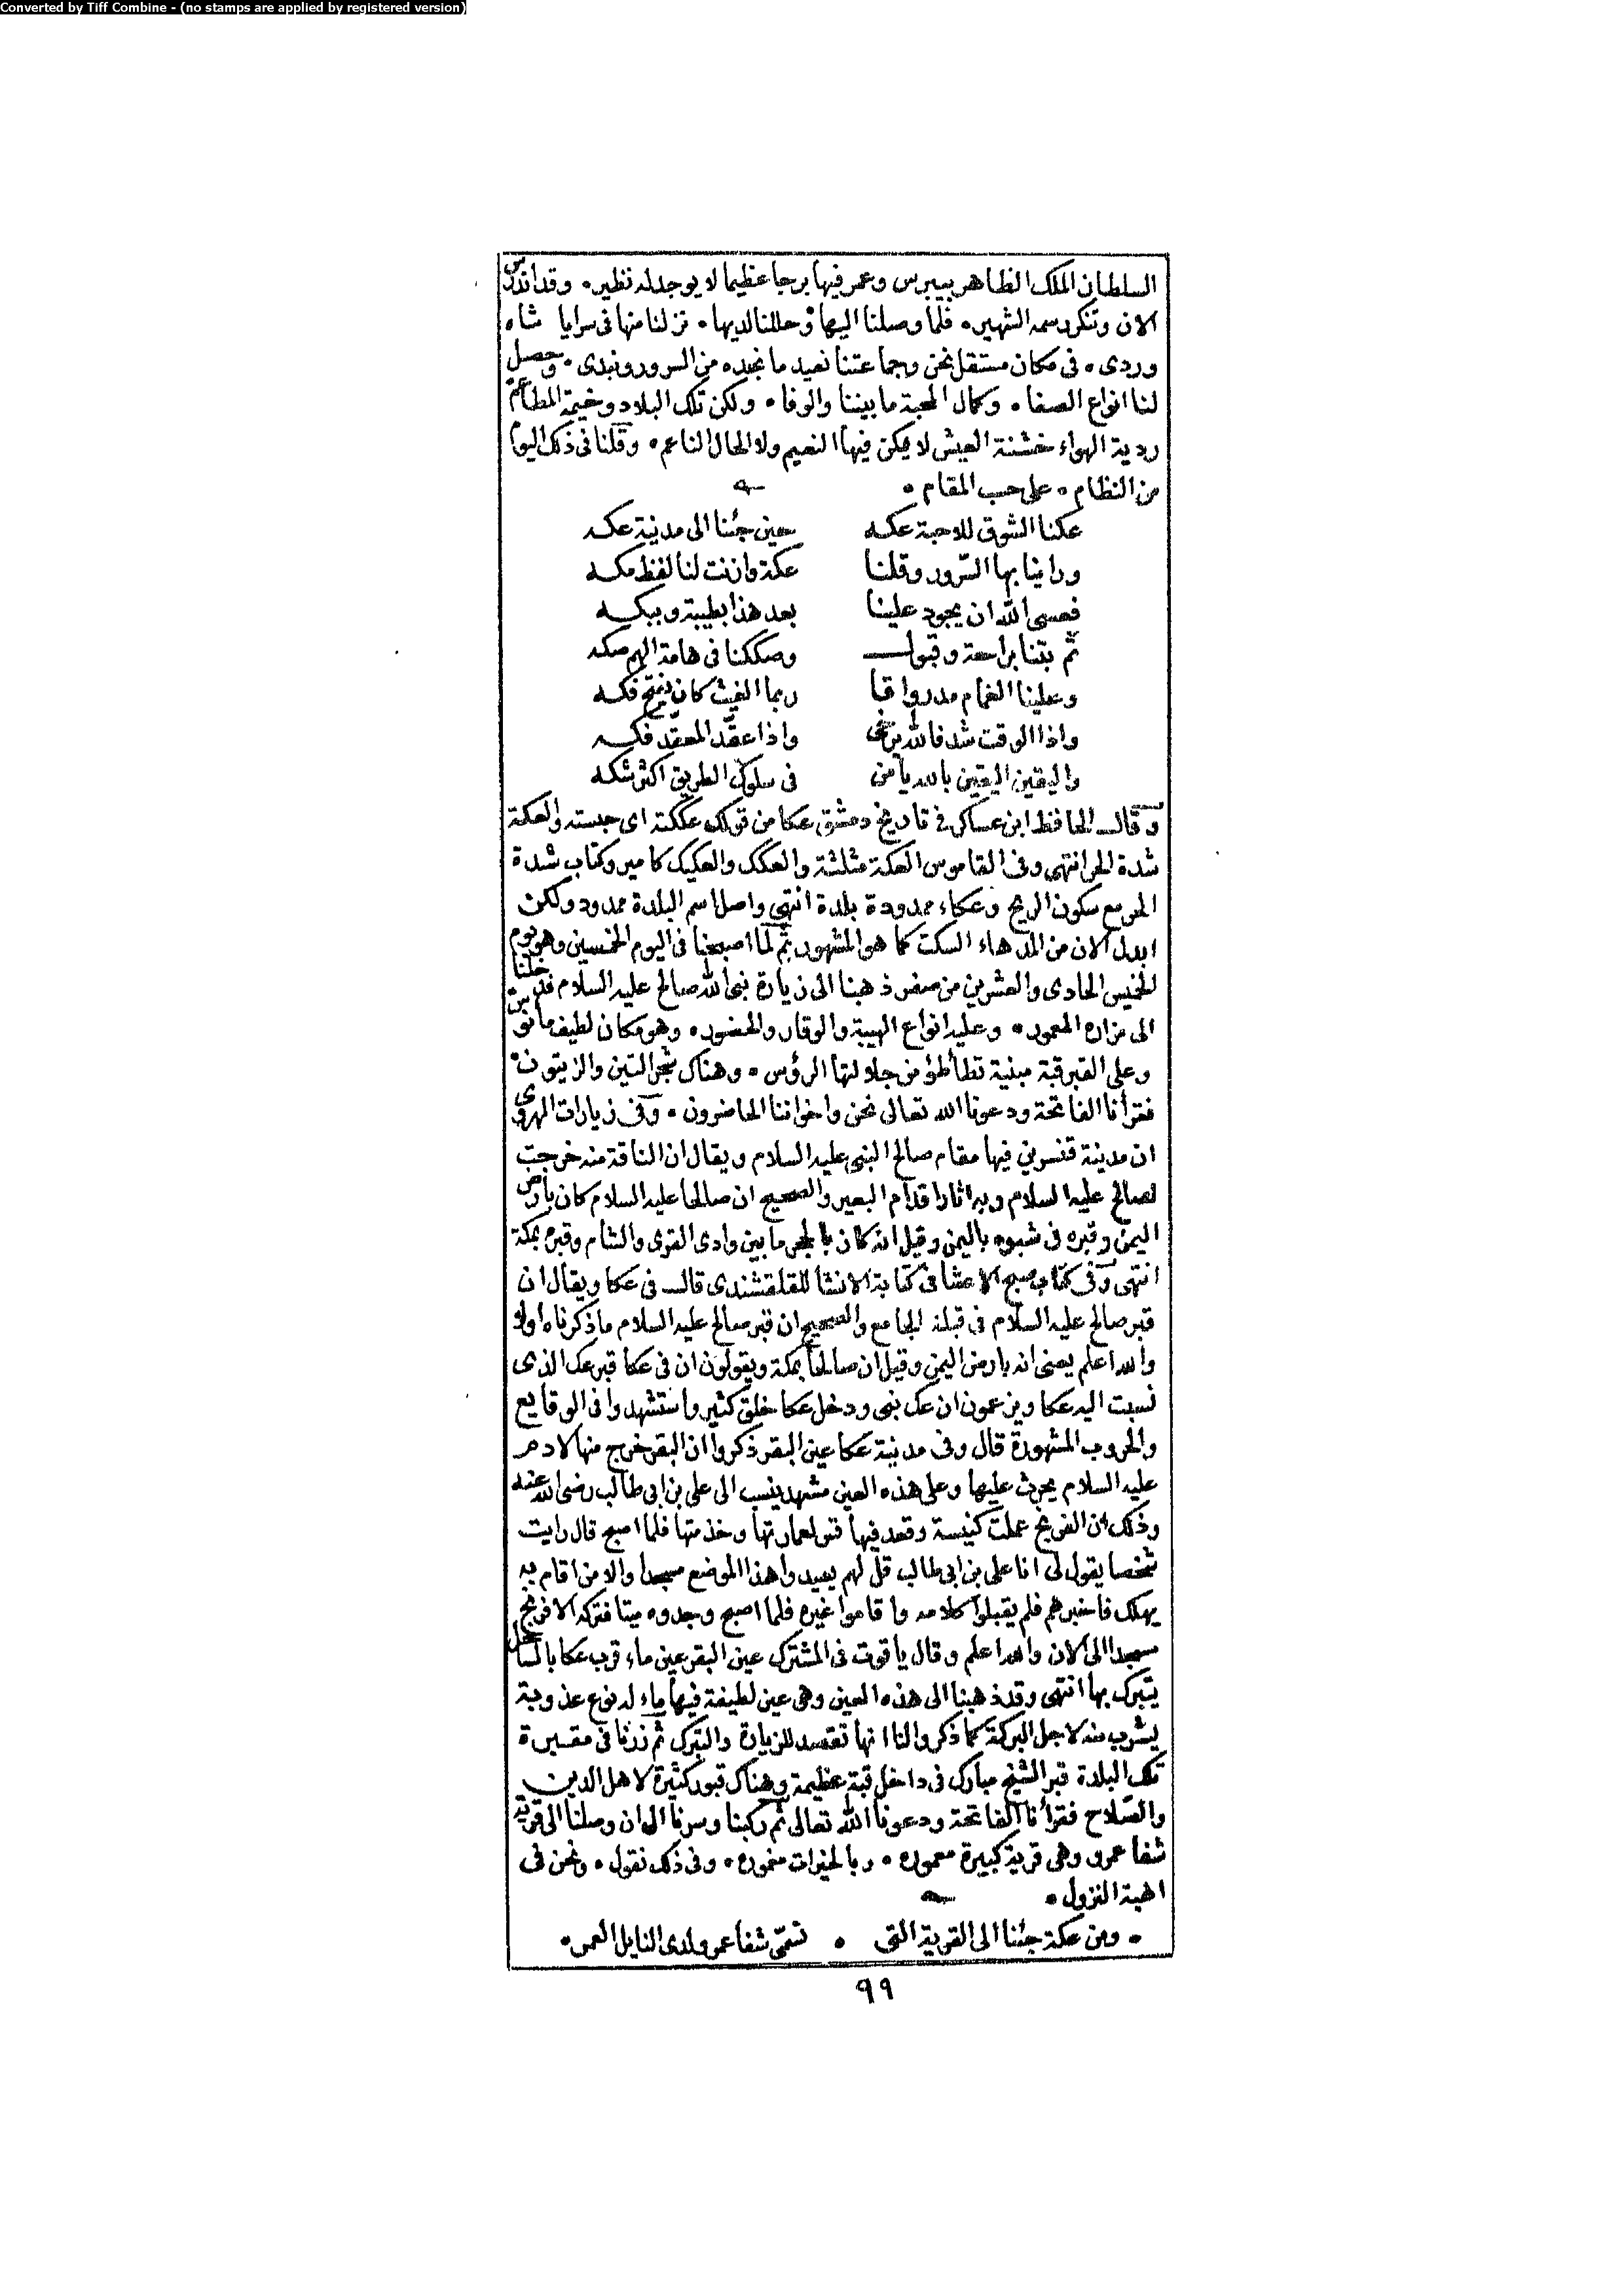 Converted by Tiff Combine - (no stamps are applied by registered version)
السلطان الملك الظاهر بيبرس وعمر فيها برجا عظيما لا يوجد له نظير ۰ وقد اندرس
الان وتنكر رسمه الشهير ۰ فلما وصلنا اليها وحللنا لديها ۰ نزلنا منها فى سرايا شاه
وردى ۰ فى مكان مستقل نحن وجماعتنا نعيد ما نجده من السرور ونبدى ۰ وحصل
لنا انواع الصفا ۰ وكمال المحبة ما بيننا والوفا ۰ ولكن تلك البلاد وخيمة المطاعم
ردية الهواء خشنة العيش لا يمكن فيها النعيم ولا الحال الناعم ۰ وقلنا فى ذلك اليوم
من النظام ۰ على حسب المقام ۰
عكنا الشوق للاحبة عكه حين جئنا الى مدينة عكه
وراينا بها السّرور وقلنا عكة وازنت لنا لفظ مكه
فعسى الله ان يجود علينا بعد هذا بطيبة وببكه
ثم بتنا براحة وقبول وصككنا فى هامة الهم صكه
وعلينا الغمام مد رواقا ربما الغيث كان يفتح فكه
واذا الوقت شد فالله يرخى واذا عقّد المعقّد فكه
واليقين اليقين بالله يا من فى سلوك الطريق اكثر شكه
وقال الحافظ ابن عساكر فى تاريخ دمشق عكا من قولك عككته اى حبسته والعكة
شدة الحر انتهى وفى القاموس العكة مثلثة والعكك والعكيك كامير وكتاب شدة
الحر مع سكون الريح وعكاء ممدودة بلدة انتهى واصل اسم البلدة ممدود ولكن
ابدل الان من المد هاء السكت كما هو المشهور ثم لما اصبحنا فى اليوم الخمسين وهو يوم
الخميس الحادى والعشرين من صفر ذهبنا الى زيارة نبى الله صالح عليه السلام فدخلنا
الى مزاره المعمور ۰ وعليه انواع الهيبة والوقار والحضور ۰ وهو مكان لطيف مانوس
وعلى القبر قبة مبنية تطأطؤ من جلالتها الرؤس ۰ وهناك شجر التين والزيتون
فقرأنا الفاتحة ودعونا الله تعالى نحن واخواننا الحاضرون ۰ وفى زيارات الهروى
ان مدينة قنسرين فيها مقام صالح النبى عليه السلام ويقال ان الناقة منه خرجت
لصالح عليه السلام وبه اثار اقدام البعير والصحيح ان صالحا عليه السلام كان بارض
اليمن وقبره فى شبوه باليمن وقيل انه كان بالحجر ما بين وادى القرى والشام وقبره بمكة
انتهى وفى كتاب صبح الاعشا فى كتابة الانشا للقلقشندى قال فى عكا ويقال ان
قبر صالح عليه السلام فى قبلة الجامع والصحيح ان قبر صالح عليه السلام ما ذكرناه اولا
والله اعلم يعنى انه بارض اليمن وقيل ان صالحا بمكة ويقولون ان فى عكا قبر عك الذى
نسبت اليه عكا ويزعمون ان عك نبى ودخل عكا خلق كثير واستشهدوا فى الوقايع
والحروب المشهورة قال وفى مدينة عكا عين البقر ذكروا ان البقر خرج منها لادم
عليه السلام يحرث عليها وعلى هذه العين مشهد ينسب الى على بن ابى طالب رضى الله عنه
وذلك ان الفرنج عملت كنيسة وقعد فيها قيم لعمارتها وخدمتها فلما اصبح قال رايت
شخصا يقول لى انا على بن ابى طالب قل لهم يعيدوا هذا الموضع مسجدا والا من اقام به
يهلك فاخبرهم فلم يقبلوا كلامه واقاموا غيره فلما اصبح وجدوه ميتا فتركه الافرنج
مسجدا الى الان والله اعلم وقال ياقوت فى المشترك عين البقر عين ماء قرب عكا بالساحل
يتبرك بها انتهى وقد ذهبنا الى هذه العين وهى عين لطيفة فيها ماء له نوع عذوبة
يشرب منه لاجل البركة كما ذكروا لنا انها تقصد للزيارة والتبرك ثم زرنا فى مقبرة
تلك البلدة قبر الشيخ مبارك فى داخل قبة عظيمة وهناك قبور كثيرة لاهل الدين
والصّلاح فقرأنا الفاتحة ودعونا الله تعالى ثم ركبنا وسرنا الى ان وصلنا الى قرية
شفا عمرو وهى قرية كبيرة معموره ۰ وبالخيرات مغموره ۰ وفى ذلك نقول ۰ ونحن فى
اهبة النزول ۰
۰ ومن عكة جئنا الى القرية التى ۰ تسمّى شفا عمرو لدى النايل العمر ۰
٩٩